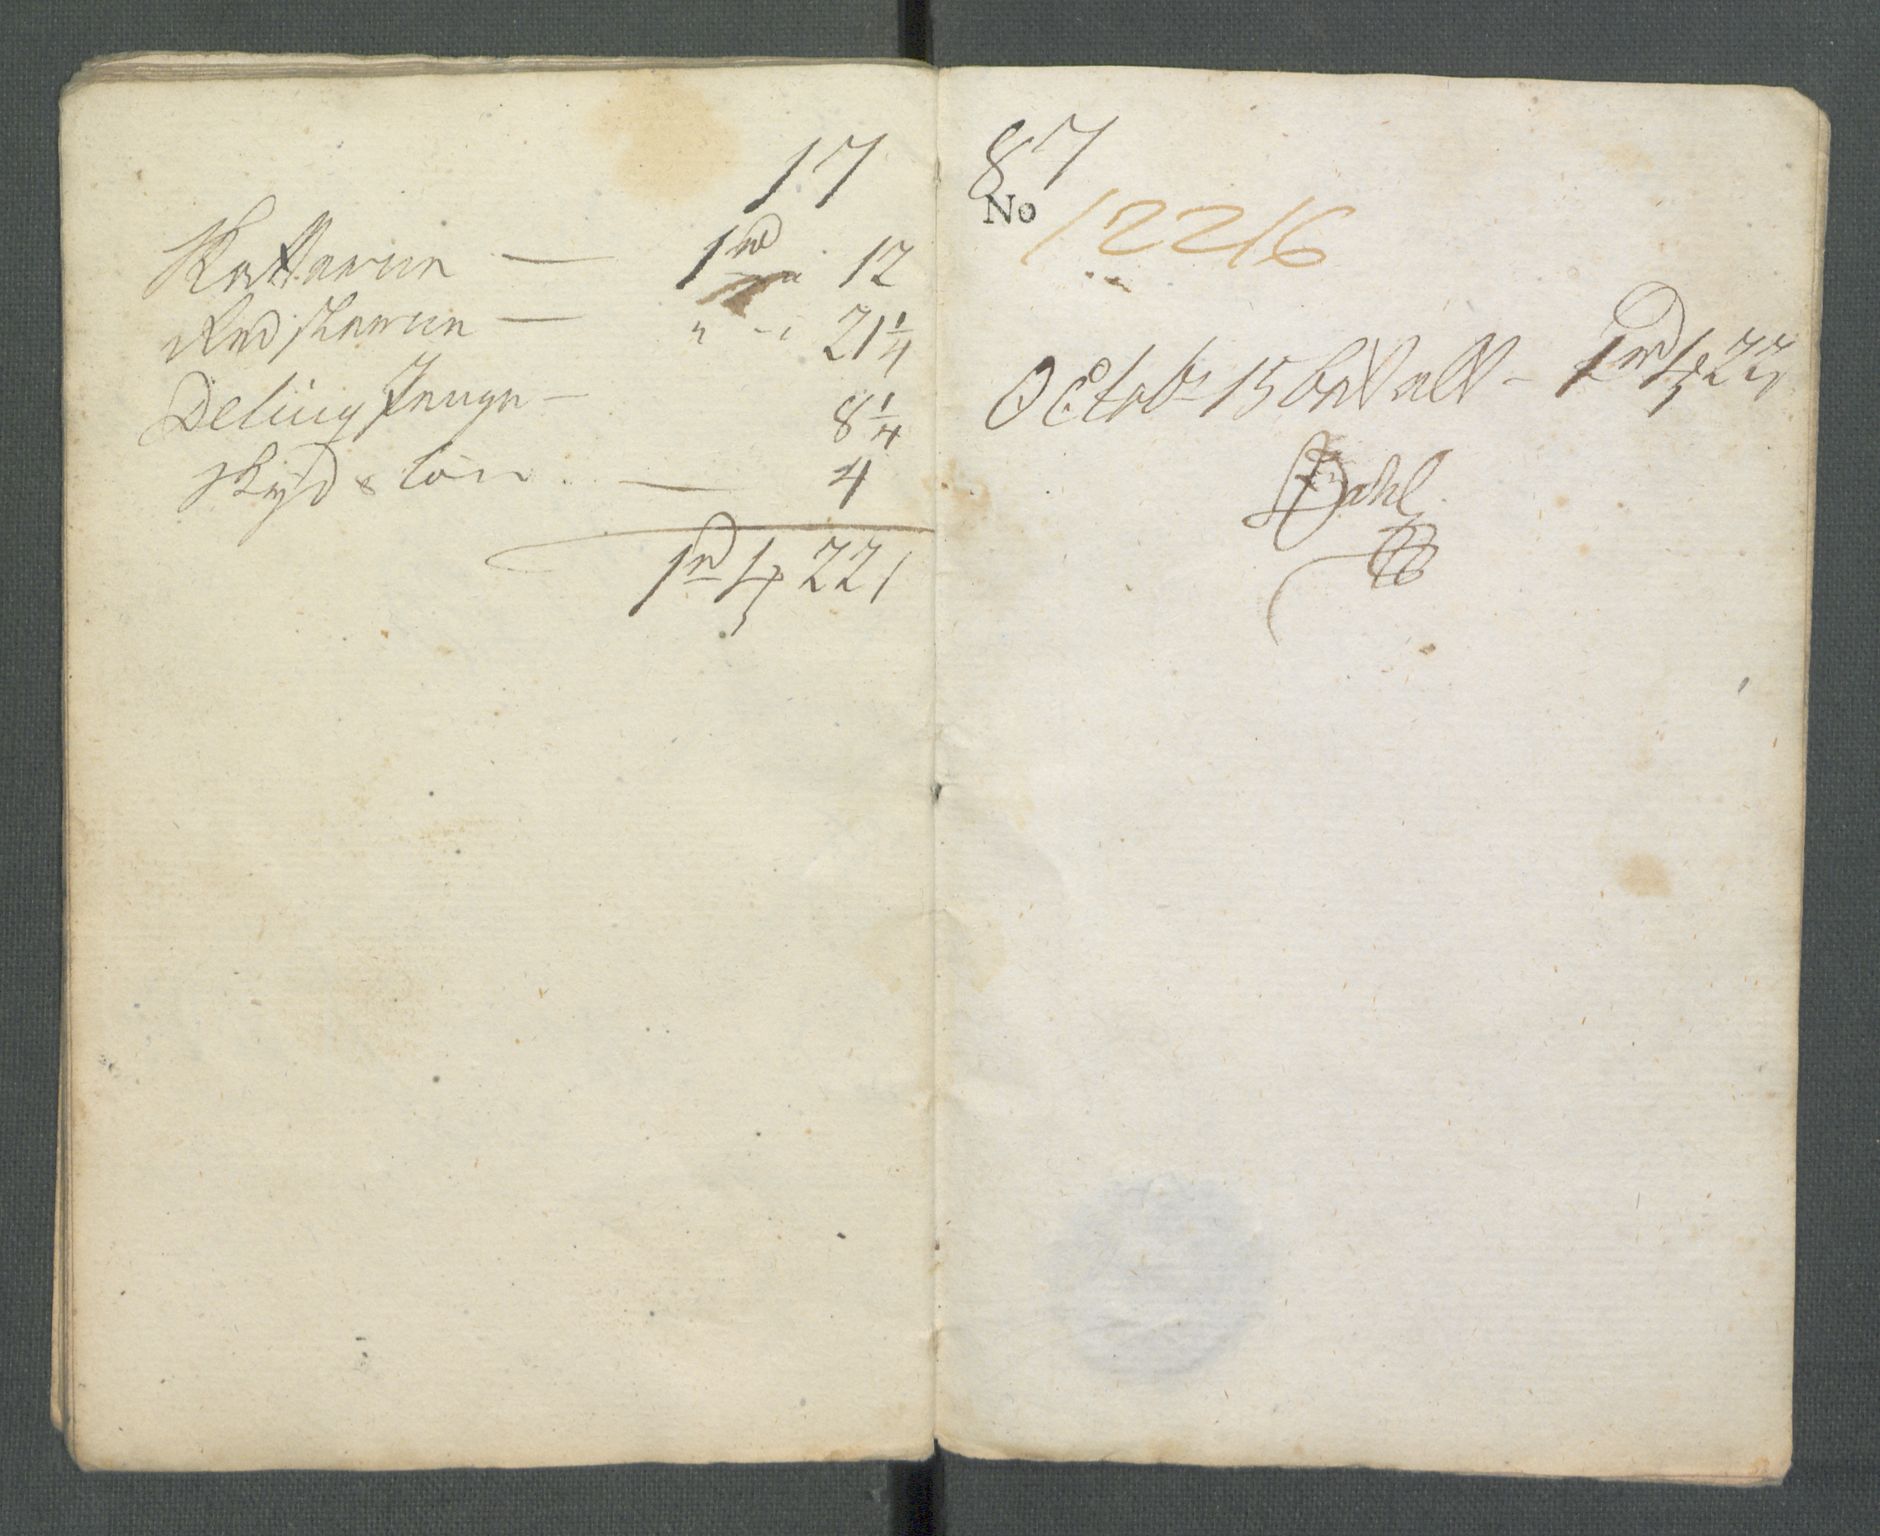 17
Skatterne — 1 rd " 12
Redskerne — " - " 21 1/4
Deling Penge — 8 1/4
Skyds løn — 4
1 rd 4 221
87
No 12216
Octobr 15 betalt - 1 rd 4 22
Dahl